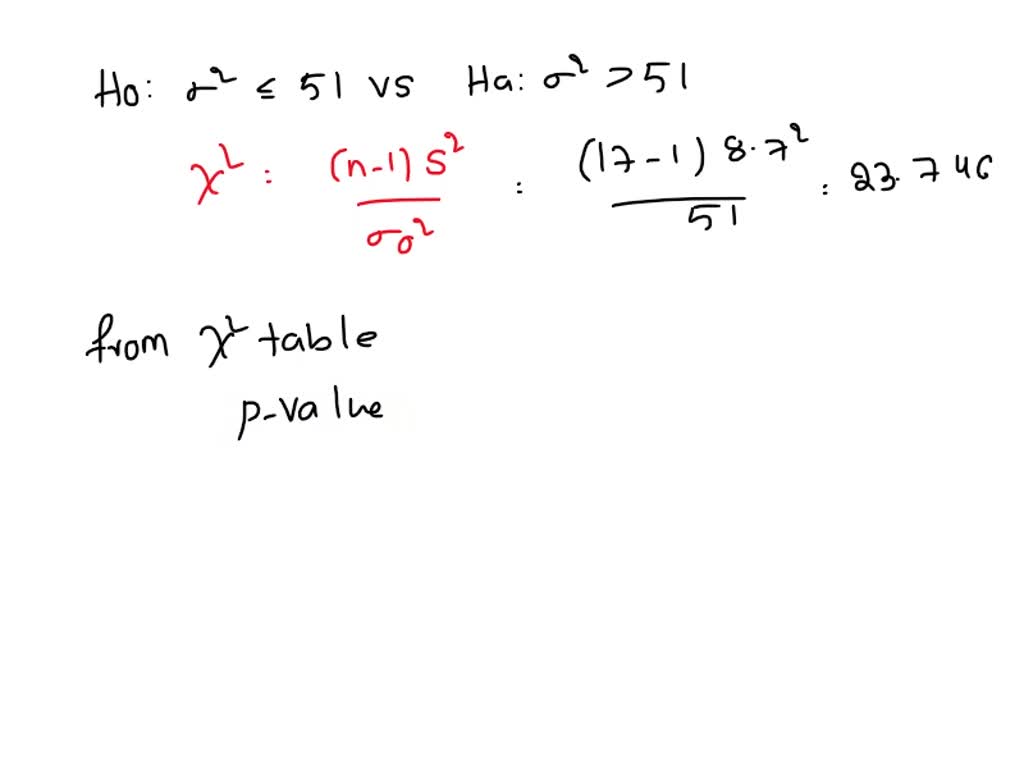 Ho: σ² ≤ 51 vs Ha: σ² > 51
χ² : (n-1) S² / σ₀² : (17-1) 8.7² / 51 : 23.746
from χ² table
p-value